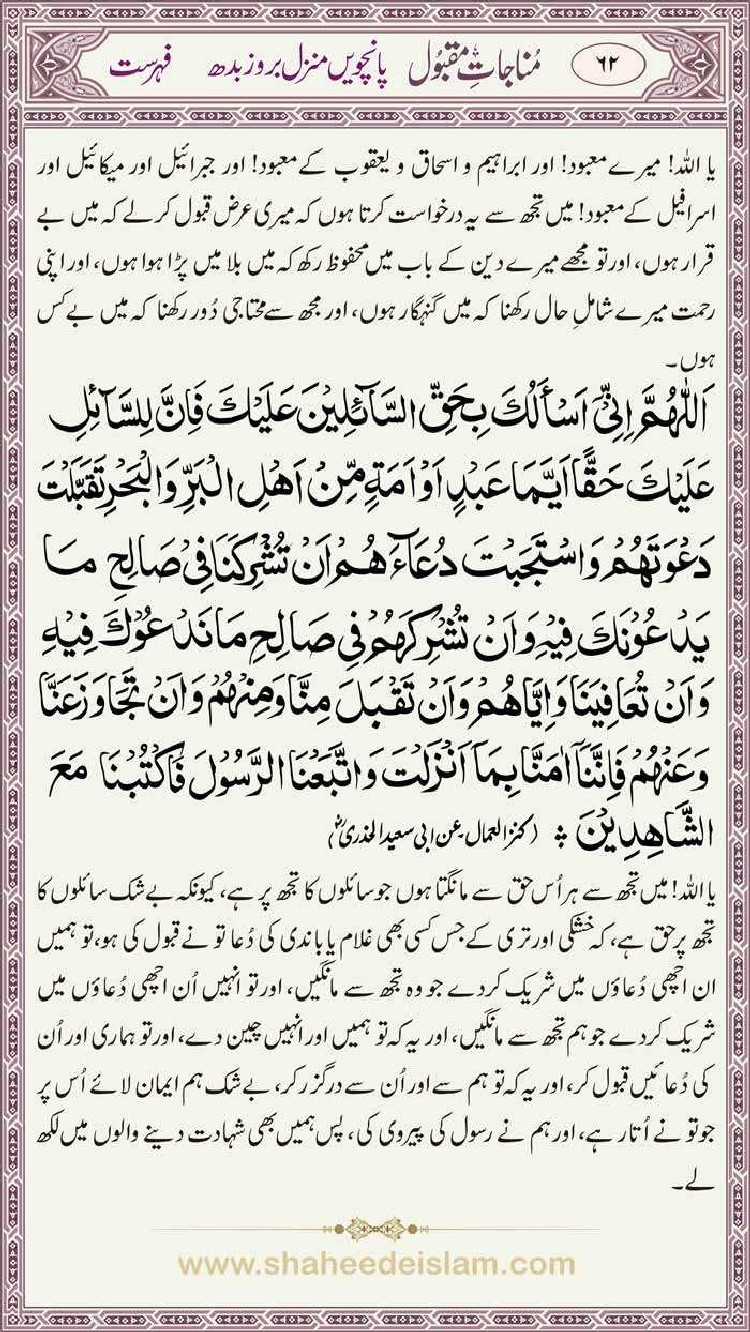 ۶۲ مُناجاتِ مقبُول پانچویں منزل بروز بدھ فہرست
یا اللہ! میرے معبود! اور ابراہیم و اسحاق و یعقوب کے معبود! اور جبرائیل اور میکائیل اور
اسرافیل کے معبود! میں تجھ سے یہ درخواست کرتا ہوں کہ میری عرض قبول کرلے کہ میں بے
قرار ہوں، اور تو مجھے میرے دین کے باب میں محفوظ رکھ کہ میں بلا میں پڑا ہوا ہوں، اور اپنی
رحمت میرے شاملِ حال رکھنا کہ میں گنہگار ہوں، اور مجھ سے محتاجی دُور رکھنا کہ میں بے کس
ہوں۔
اَللّٰهُمَّ اِنِّیْٓ اَسْأَلُكَ بِحَقِّ السَّآئِلِيْنَ عَلَيْكَ فَاِنَّ لِلسَّآئِلِ
عَلَيْكَ حَقًّا اَيَّمَا عَبْدٍ اَوْ اَمَةٍ مِّنْ اَهْلِ الْبَرِّ وَالْبَحْرِ تَقَبَّلْتَ
دَعْوَتَهُمْ وَاسْتَجَبْتَ دُعَآءَهُمْ اَنْ تُشْرِكَنَا فِیْ صَالِحِ مَا
يَدْعُوْنَكَ فِيْهِ وَاَنْ تُشْرِكَهُمْ فِیْ صَالِحِ مَا نَدْعُوْكَ فِيْهِ
وَاَنْ تُعَافِيَنَا وَاِيَّاهُمْ وَاَنْ تَقْبَلَ مِنَّا وَمِنْهُمْ وَاَنْ تَجَاوَزَ عَنَّا
وَعَنْهُمْ فَاِنَّنَآ اٰمَنَّا بِمَآ اَنْزَلْتَ وَاتَّبَعْنَا الرَّسُوْلَ فَاكْتُبْنَا مَعَ
الشَّاهِدِيْنَ ۞ (کنز العمال، عن ابی سعید الخدریؓ)
یا اللہ! میں تجھ سے ہر اُس حق سے مانگتا ہوں جو سائلوں کا تجھ پر ہے، کیونکہ بے شک سائلوں کا
تجھ پر حق ہے، کہ خشکی اور تری کے جس کسی بھی غلام یا باندی کی دُعا تو نے قبول کی ہو، تو ہمیں
ان اچھی دُعاؤں میں شریک کردے جو وہ تجھ سے مانگیں، اور تو انہیں اُن اچھی دُعاؤں میں
شریک کردے جو ہم تجھ سے مانگیں، اور یہ کہ تو ہمیں اور انہیں چین دے، اور تو ہماری اور اُن
کی دُعائیں قبول کر، اور یہ کہ تو ہم سے اور اُن سے درگزر کر، بے شک ہم ایمان لائے اُس پر
جو تو نے اُتارا ہے، اور ہم نے رسول کی پیروی کی، پس ہمیں بھی شہادت دینے والوں میں لکھ
لے۔
www.shaheedeislam.com